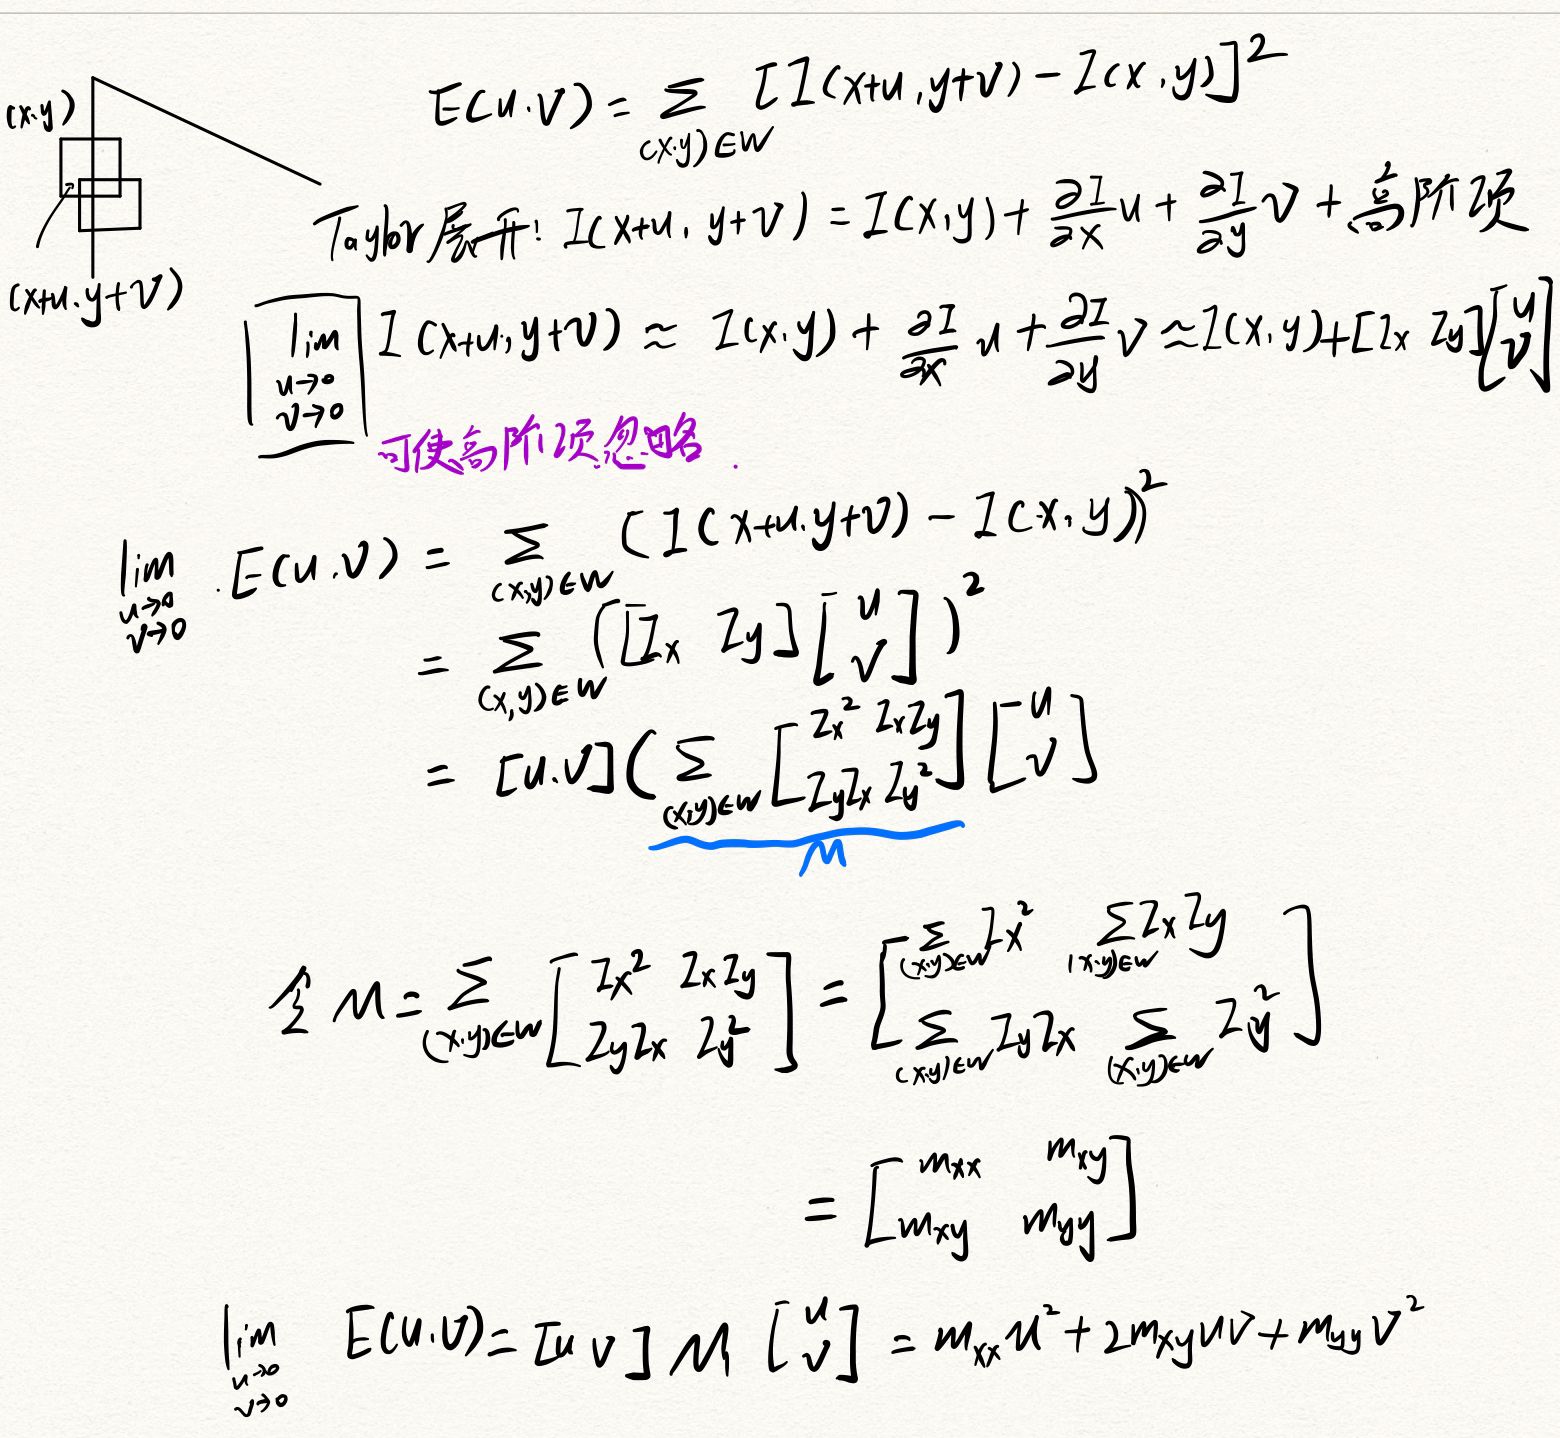 E(u.v) = Σ_{(x.y)∈W} [I(x+u, y+v) - I(x, y)]²
(x.y)
Taylor 展开: I(x+u, y+v) = I(x, y) + ∂I/∂x u + ∂I/∂y v + 高阶项
(x+u.y+v)
lim_{u→0 v→0} I(x+u, y+v) ≈ I(x.y) + ∂I/∂x u + ∂I/∂y v ≈ I(x, y) + [Ix Iy] [u v]
可使高阶项忽略.
lim_{u→0 v→0} E(u.v) = Σ_{(x,y)∈W} (I(x+u.y+v) - I(x, y))²
= Σ_{(x,y)∈W} ([Ix Iy] [u v])²
= [u.v] (Σ_{(x,y)∈W} [Ix² IxIy IyIx Iy²] [u v]
M
令 M = Σ_{(x.y)∈W} [Ix² IxIy IyIx Iy²] = [Σ_{(x.y)∈W} Ix² Σ_{(x.y)∈W} IxIy Σ_{(x.y)∈W} IyIx Σ_{(x.y)∈W} Iy²]
= [mxx mxy mxy myy]
lim_{u→0 v→0} E(u.v) = [u v] M [u v] = mxx u² + 2mxy uv + myy v²